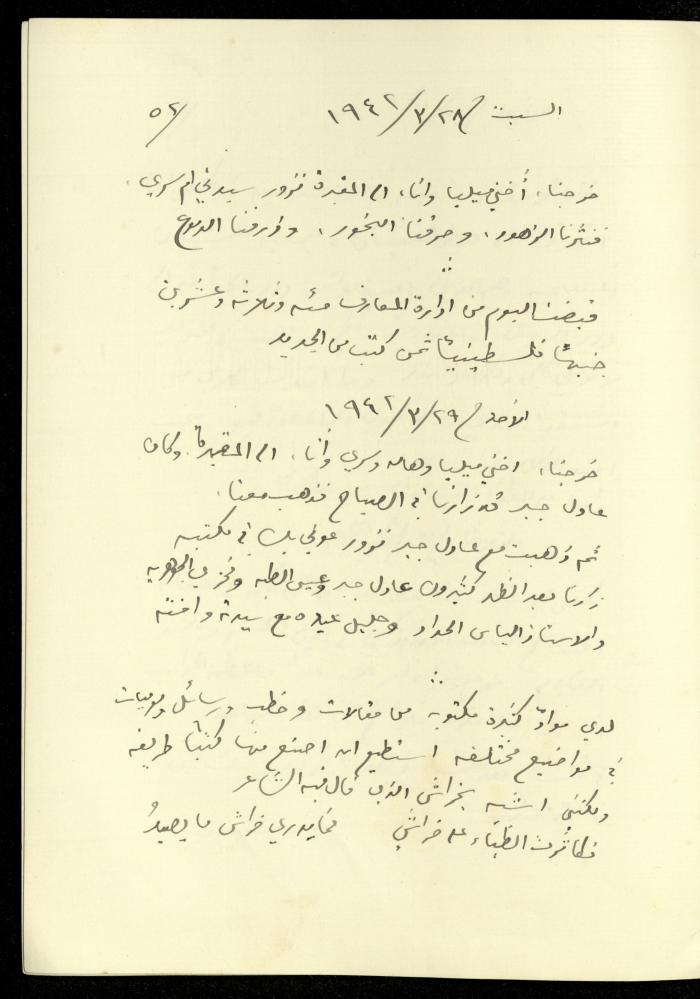 السبت ٢٨/٣/١٩٤٢ ٥٢/
خرجنا، أختي ميليا وانا، الى المقبرة نزور سيدتي ام سري.
فنثرنا الزهور، وحرقنا البخور، وذرفنا الدموع
∴
قبضنا اليوم من ادارة المعارف مئه وثلاثة وعشرين
جنيهًا فلسطينيًا ثمن كتب من الجديد
الأحد ٢٩/٣/١٩٤٢
خرجنا، اختي ميليا وهاله وسري وأنا، الى المقبرة. وكان
عادل جبر قد زارنا في الصباح فذهب معنا.
ثم ذهبت مع عادل جبر نزور عوني بك في مكتبه
زارنا بعد الظهر كثيرون عادل جبر وعيسى الطبه وفخري الجوهريه
والاستاذ الياس الحداد وجليل عبده مع سيدته وافنته
∴
لدي موادّ كثيرة مكتوبة من مقالات وخطب ورسائل ويوميات
في مواضيع مختلفه استطيع ان اصنع منها كتبًا طريفه
ولكنني اشبه بخراش الذي قال فيه الشاعر
تكاثرت الظباء على خراشٍ فما يدري خراش ما يصيدُ